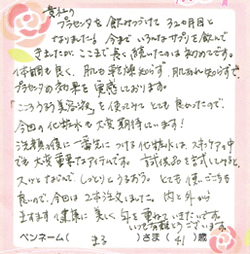 貴社の
プラセンタを飲みつづけて32ヶ月目と
なりました。今までいろんなサプリを飲んで
きましたが、ここまで長く続いたのは初めてです。
体調も良く、肌も乾燥知らず、肌あれ知らずで
プラセンタの効果を実感しております。
「こうろう美容液」を使ってみてとても良かったので、
今回の化粧水も大変期待しています!
洗顔後に一番先につける化粧水はスキンケアの中
でも大変重要なアイテムです。 試供品を試してみると、
スッとなじんで しっとり うるおう。とても使いごこちも
良いので、今回は2本注文しました。内と外から
ますます健康に美しく年を重ねていきたいです。
いつもありがとうございます。
ペンネーム( まる )さま( 41 )歳